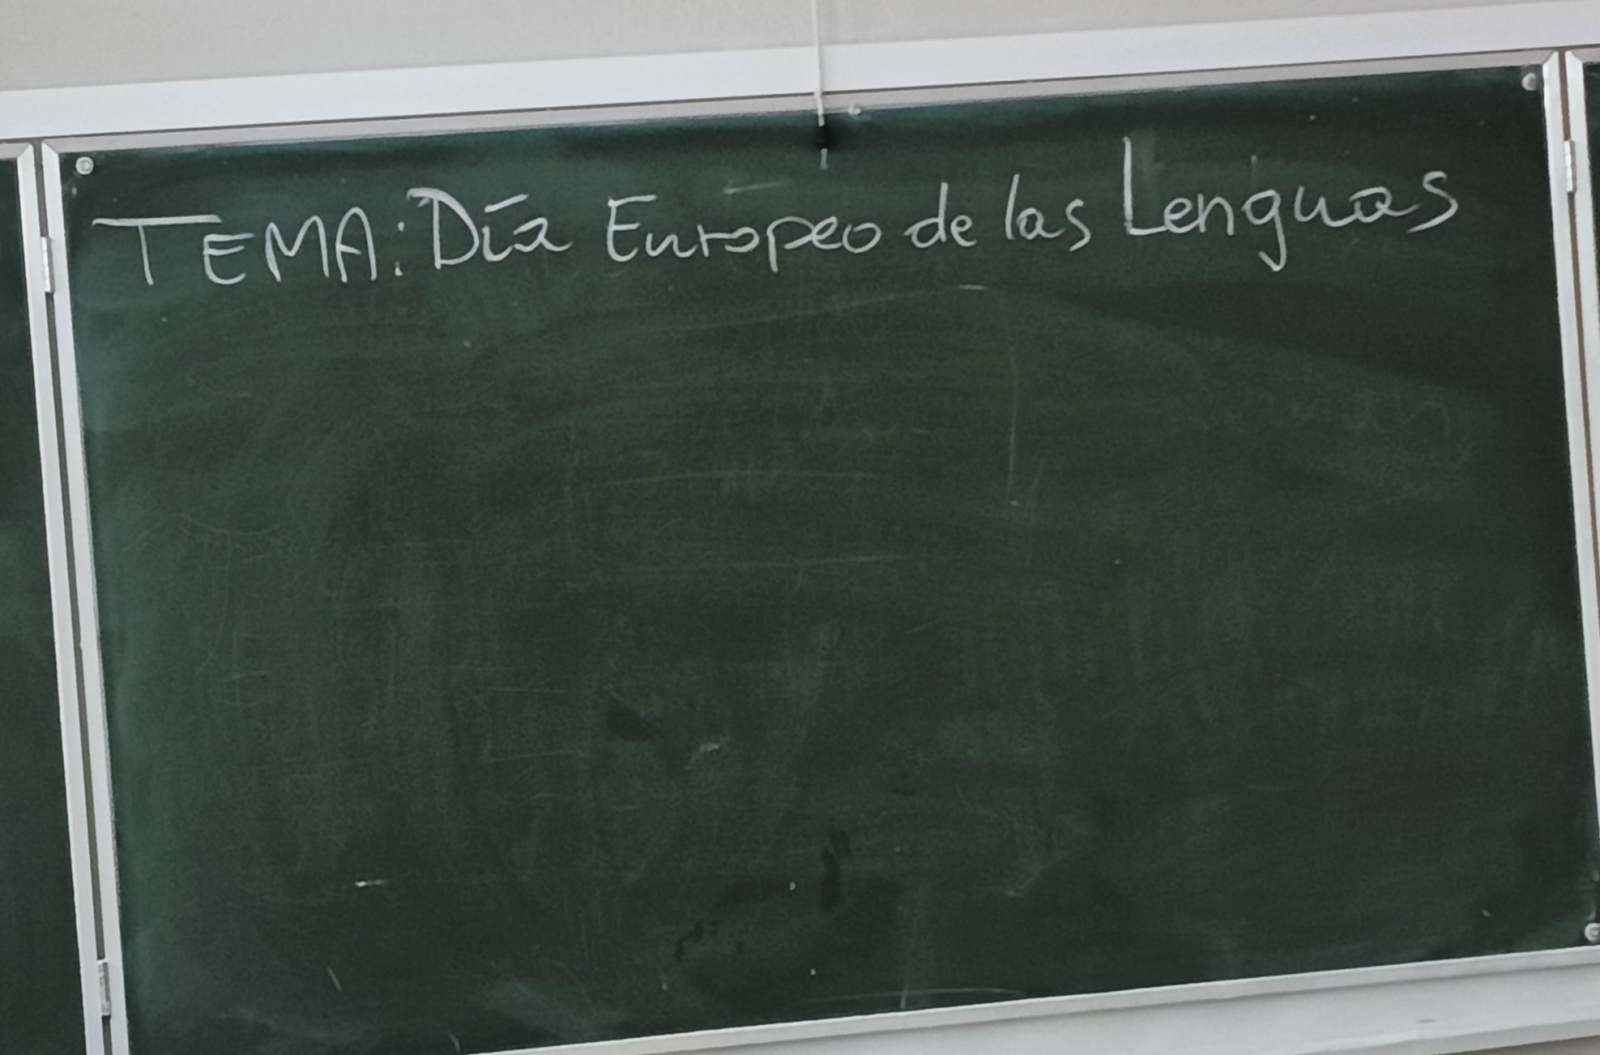 TEMA: Día Europeo de las Lenguas